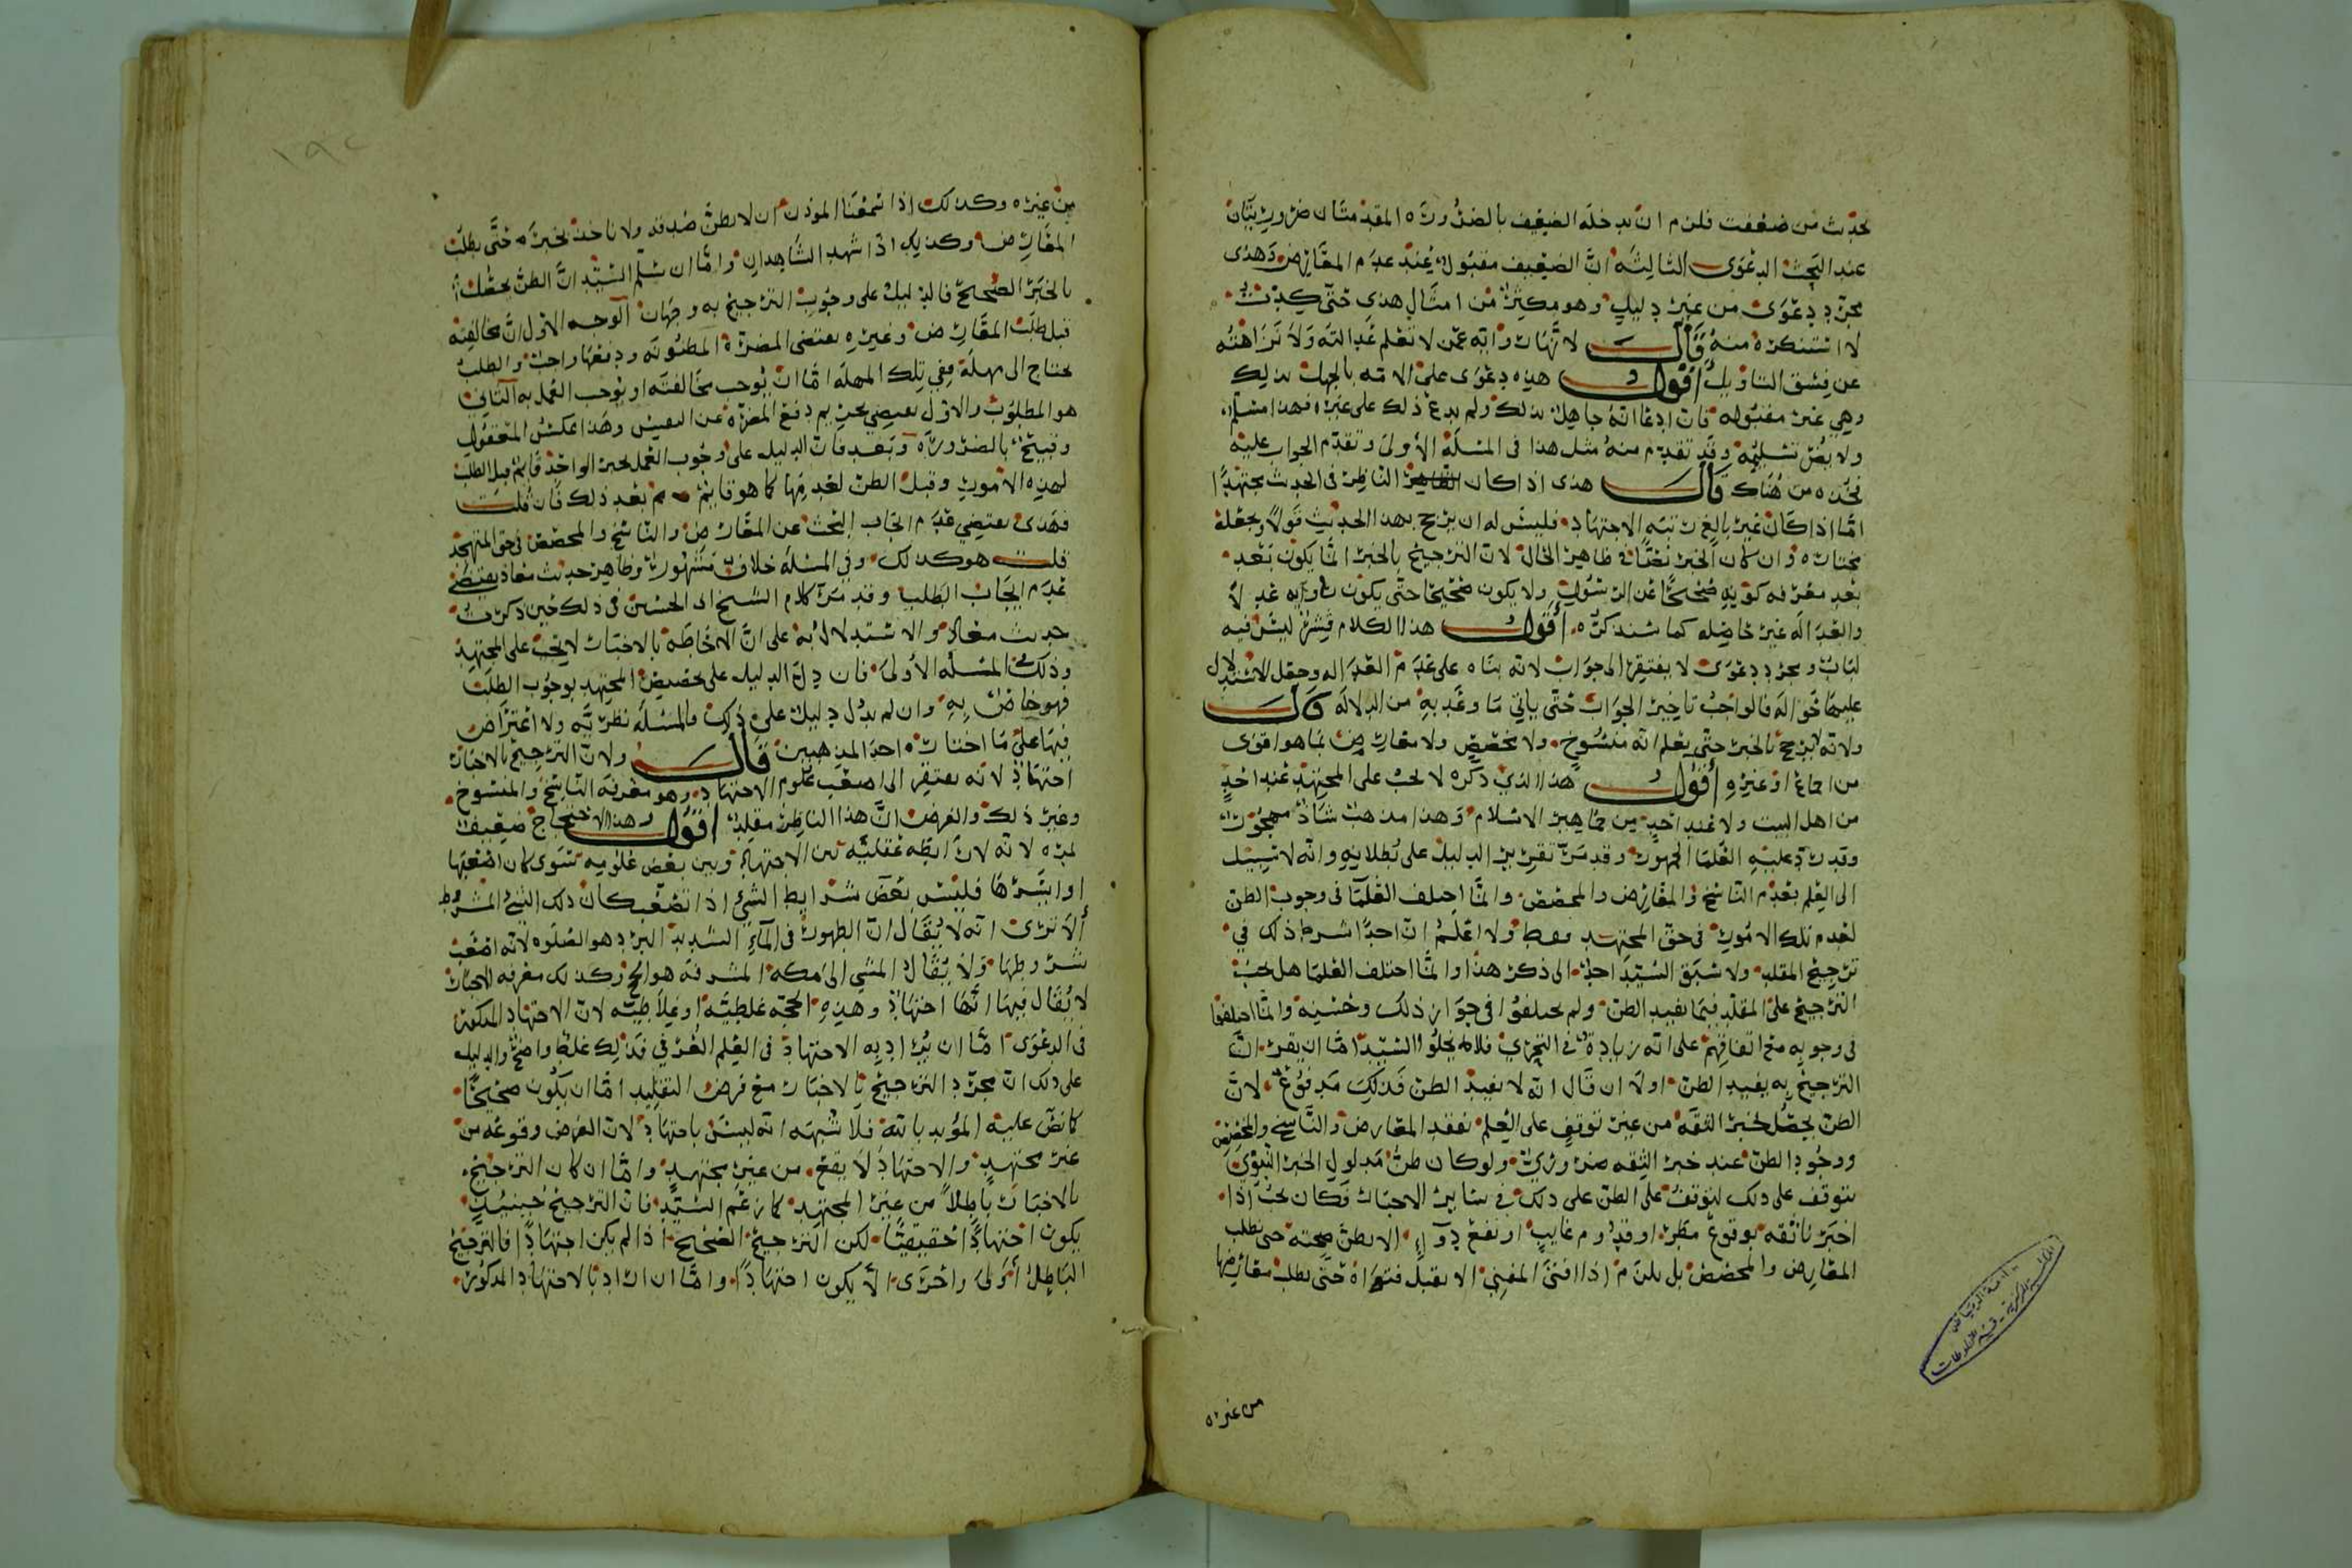 بحديث من ضعفت فلزم ان يدخله الضعيف بالضرورة المقدمتان ضروريتان
عند البحث الدعوى الثالثة ان الضعيف مقبول عند عدم المعارض وهذى
مجرد دعوى من غير دليل وهو مكثر من امثال هذى حتى كدت
لا استنكره منه قال لانها رواية عمن لا نعلم عدالته ولا نزاهته
عن فسق التأويل اقول هذه دعوى على الامة بالجهل بذلك
وهي غير مقبوله فان ادعا انه جاهل بذلك ولم يدع ذلك على غيره فهذا مسلم
ولا يضر تسليمه وقد تقدم منه مثل هذا فى المسئلة الأولى وتقدم الجواب عليه
فخذه من هناك قال هذى اذا كان الناظر فى الحديث مجتهدا
امّا اذا كان غير بالغ رتبه الاجتهاد فليس له ان يرجح بهذا الحديث قولا ويجعله
مختاره وان كان الخبر نصا فى ظاهر الحال لان الترجيح بالخبر انما يكون بعد
بعد معرفه كونه صحيحا عن الرسول ولا يكون صحيحا حتى يكون راويه عدلا
والعداله غير حاصله كما سنذكره اقول هذا الكلام قشر ليس فيه
لباب ومجرد دعوى لا يفتقر الى جواب لانه بناه على عدم العداله وجعل الاستدلال
عليها حواله فالواجب تاخير الجواب حتى ياتي ما وعد به من الدلاله قال
ولانه لا يرجح بالخبر حتى يعلم انه منسوخ ولا مخصص ولا معارض بما هو اقوى
من اجماع او غيره اقول هذا الذي ذكره لا يجب على المجتهد عند احد
من اهل البيت ولا عند احد من جماهير الاسلام وهذا مذهب شاذ مهجور
وقد رد عليه العلما الجمهور وقد مر تقرير الدليل على بطلانه وانه لا سبيل
الى العلم بعدم الناسخ والمعارض والمخصص وانما اختلف العلما فى وجوب الظن
لعدم تلك الامور فى حق المجتهد فقط ولا اعلم ان احدا شرط ذلك في
ترجيح المقلد ولا سبق السيد احد الى ذكر هذا وانما اختلف العلما هل يجب
الترجيح على المقلد فيما يفيد الظن ولم يختلفوا فى جواز ذلك وحسنه وانما اختلفوا
فى وجوبه مع اتفاقهم على انه زيادة فى التحري فلا يخلوا السيد اما ان يقر ان
الترجيح به يفيد الظن اولا ان قال انه لا يفيد الظن فذلك مدفوع لان
الظن يحصل بخبر الثقة من غير توقف على العلم بفقد المعارض والناسخ والمخصص
ووجود الظن عند خبر الثقه ضروري ولو كان ظن مدلول الخبر النبوي
يتوقف على ذلك لتوقف على الظن على ذلك فى ساير الاخبار فكان يجب اذا
اخبرنا ثقه بوقوع مطر او قدوم غايب او نفع دوآء الا نظن صحته حتى نطلب
المعارض والمخصص بل يلزم اذا افتى المفتي الا يقبل فتواه حتى يطلب معارضها
من غيره
١٩٢
من غيره وكذلك اذا سمعنا الموذن ان لا نظن صدقه ولا ناخذ بخبره حتى نطلب
المعارض وكذلك اذا شهد الشاهدان واما ان سلم السيد ان الظن يحصل
بالخبر الصحيح فالدليل على وجوب الترجيح به وجهان الوجه الاول ان مخالفته
قبل طلب المعارض وغيره يقتضى المضرة المظنونه ودفعها واجب والطلب
يحتاج الى مهلة ففي تلك المهلة اما ان يوجب مخالفته او يوجب العمل به الثاني
هو المطلوب والاول يقتضي تحريم دفع المضرة عن النفس وهذا عكس المعقول
وقبيح بالضرورة وبعد فان الدليل على وجوب العمل بخبر الواحد قايم قبل الطلب
لهذه الامور وقبل الظن لعدمها كما هو قايم من بعد ذلك فان قلت
فهذى يقتضي عدم ايجاب البحث عن المعارض والناسخ والمخصص فى حق المجتهد
قلت هو كذلك وفى المسئلة خلاف مشهور وظاهر حديث معاذ يقتضي
عدم ايجاب الطلب وقد مر كلام الشيخ ابى الحسين فى ذلك حين ذكرت
حديث معاذ والاستدلال به على ان الاحاطة بالاخبار لا يجب على المجتهد
وذلك فى المسئلة الأولى فان دل الدليل على تخصيص المجتهد بوجوب الطلب
فهو خاص به وان لم يدل دليل على ذلك فالمسئلة نظرية ولا اعتراض
فيها على ما اختاره احد المذهبين قال ولان الترجيح بالاخبار
اجتهاد لانه يفتقر الى اصعب علوم الاجتهاد وهو معرفة الناسخ والمنسوخ
وغير ذلك والغرض ان هذا الناظر مقلد اقول هذا الاحتجاج ضعيف
لمره لانه لا رابطه عقليه بين الاجتهاد وبين بعض علومه سوى كان اصعبها
او ايسرها فليس بعض شرايط الشي اذا تصعب كان ذلك الشي المشروط
ألا ترى انه لا يقال ان الطهور فى المآء الشديد البرد هو الصلوه لانه اصعب
شروطها ولا يقال المشي الى مكه المشرفه هو الحج وكذلك معرفه الاخبار
لا يقال فيها انها اجتهاد وهذه الحجه غلطيه او مغلاطيه لان الاجتهاد المذكور
فى الدعوى اما ان يراد به الاجتهاد فى العلم العرفي فذلك غلط واضح والدليل
على ذلك ان مجرد الترجيح بالاخبار مع فرض التقليد اما ان يكون صحيحا
كما نص عليه المؤيد بالله فلا شبهه انه ليس باجتهاد لان الغرض وقوعه من
غير مجتهد والاجتهاد لا يقع من غير مجتهد واما ان كان الترجيح
بالاخبار باطلا من غير المجتهد كما زعم السيد فان الترجيح حينئذ
يكون اجتهادا حقيقيا لكن الترجيح الصحيح اذا لم يكن اجتهادا فالترجيح
الباطل أولى واحرى ألا يكون اجتهادا واما ان اراد بالاجتهاد المذكور